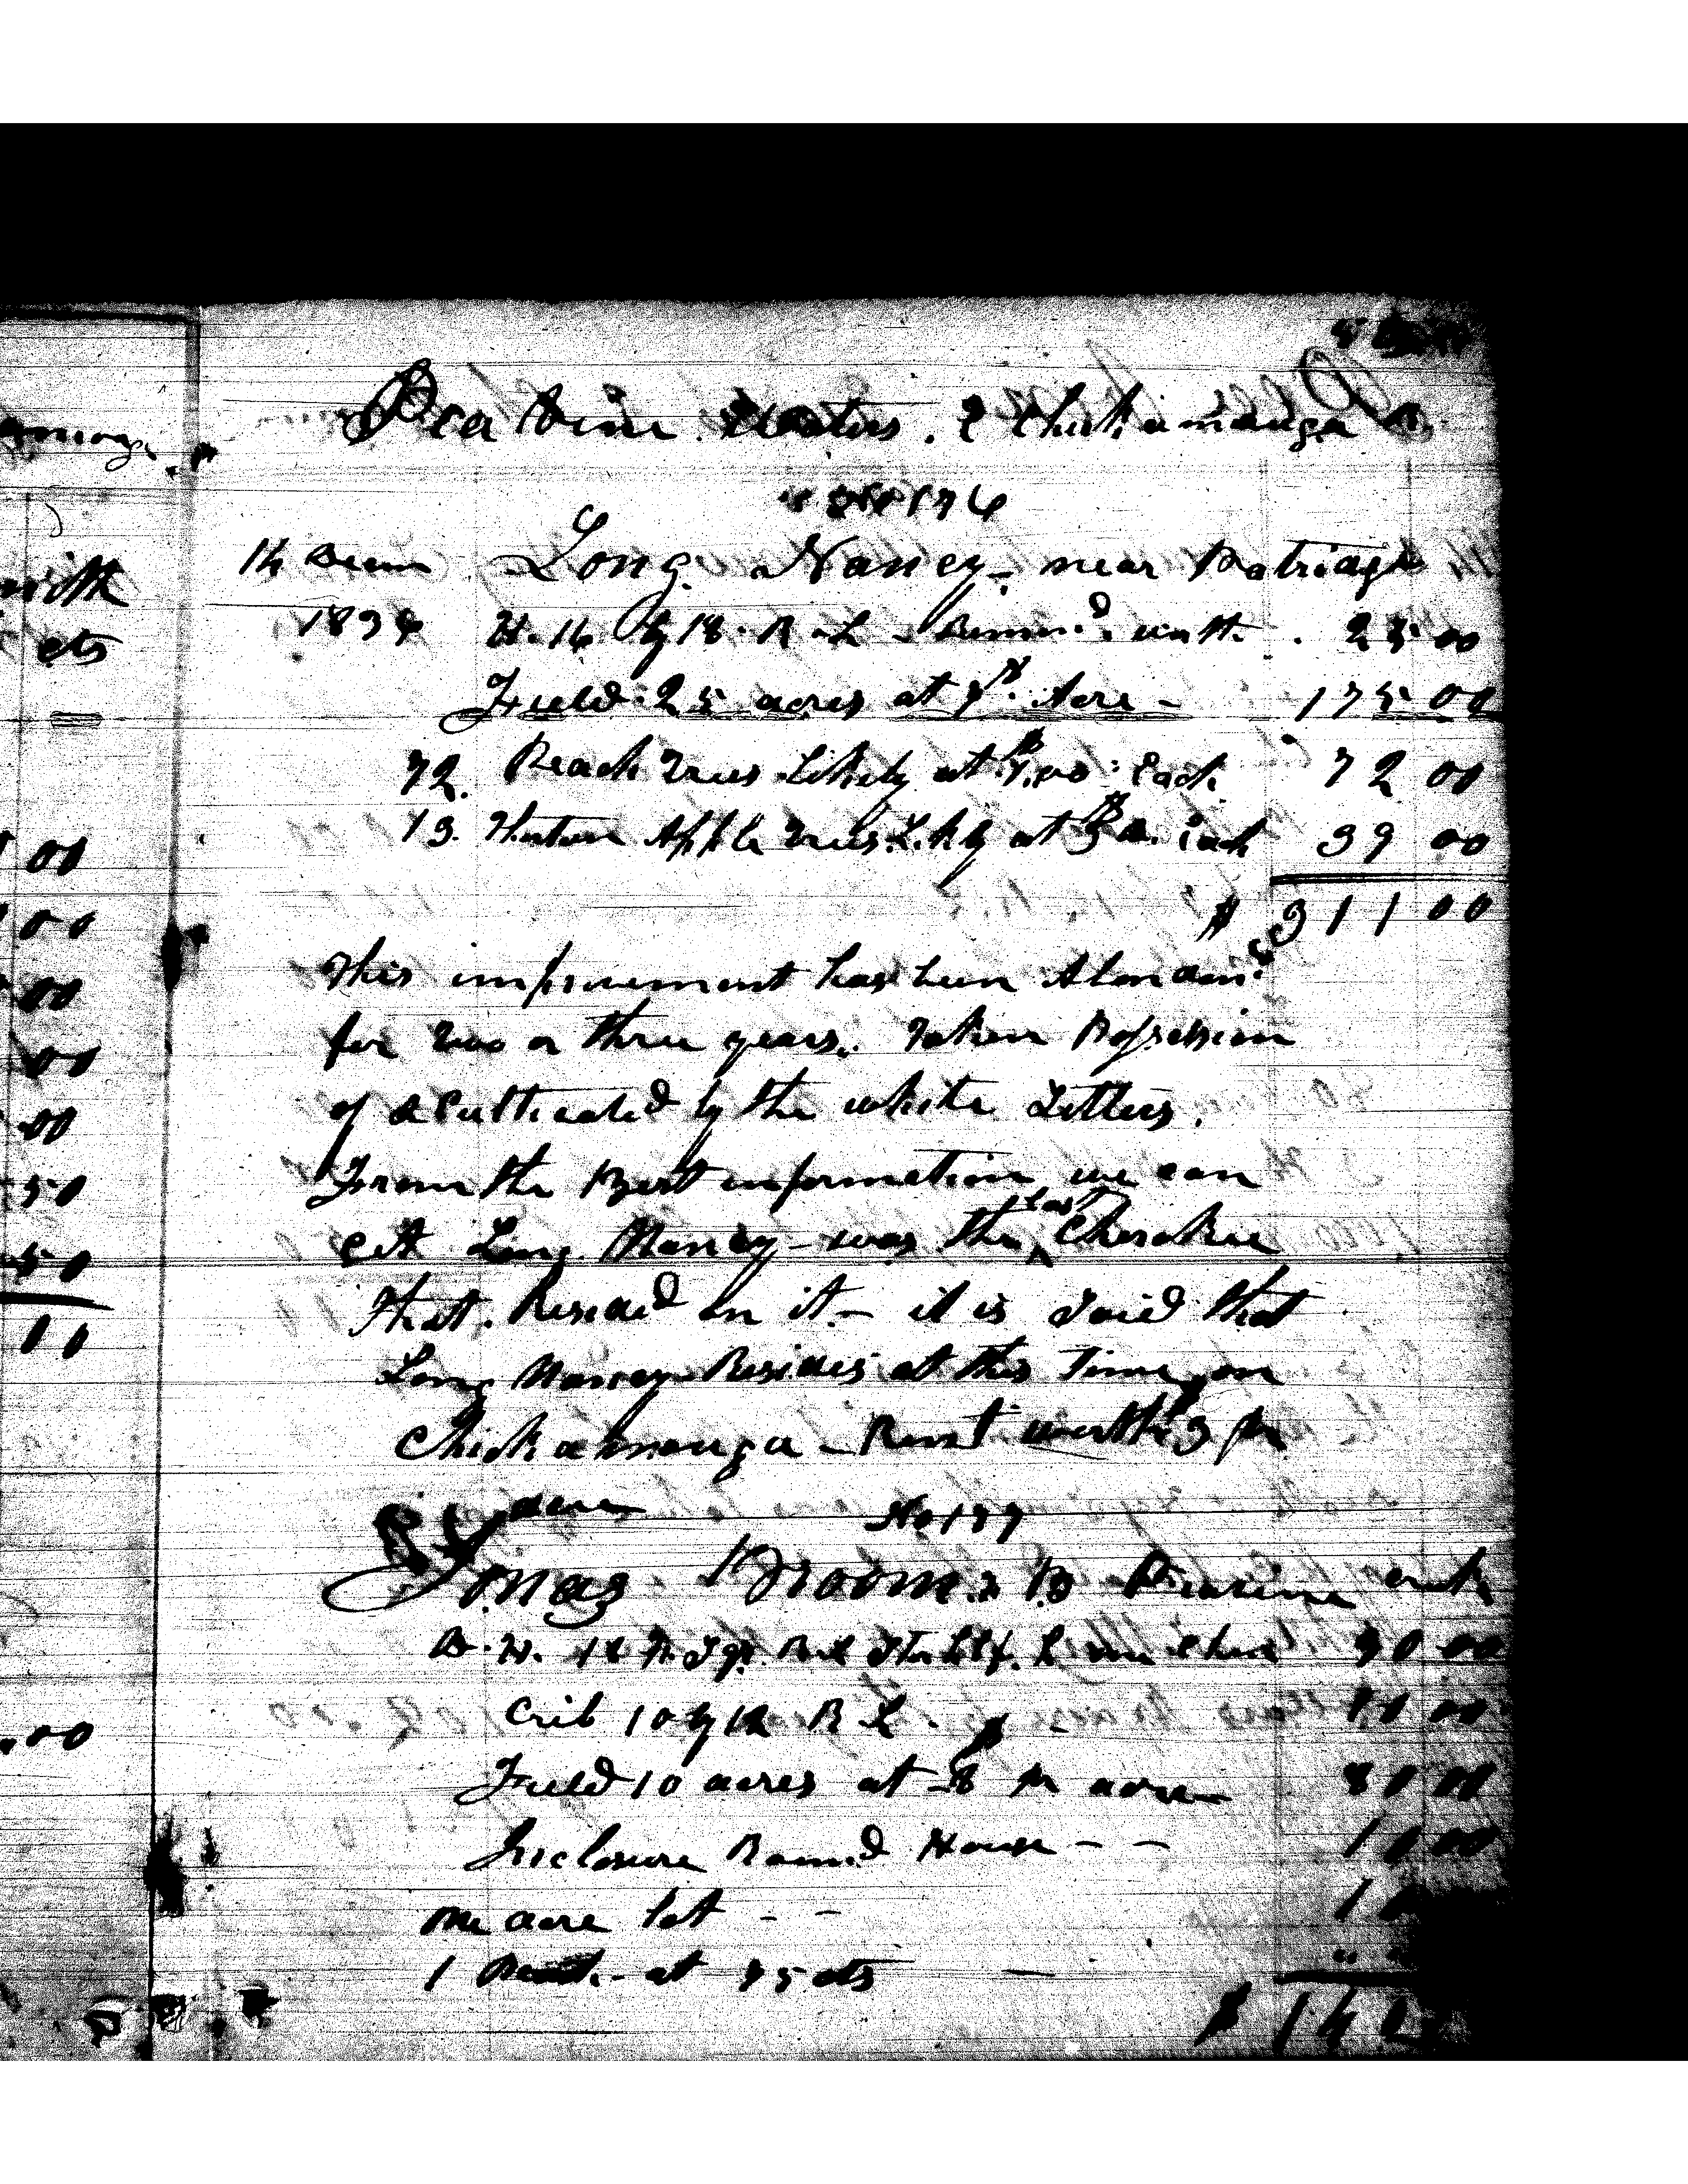 amoga
Pea Vine Waters. & Chickamauga
176
14 Decm Long Nancy - near Patridge
1836 H. 16 by 18. R L - Simm.d worth. . 25.00
Field 25 acres at 7$. Acre - 175 00
72. Peach Trees Likely at $1.00 Each 72 00
13. Thirteen Apple trees Likly at $3 each 39 00
$ 311 00
This improvement has been Abandon.d
for two or three years. Taken Possession
of & Cultivated by the white Settlers.
From the Best information we can
get Long Nancy - was the last Cherokee
That Resided on it. - it is said that
Long Nancy Resides at this Time on
Chickahmauga - Rent worth $3 pr
acre No 177
Jonas Broom. 
B. H. 00
Crib 10 by 12 R L. - 00
Field 10 acres at $8 pr acre 80 00
Inclosure Roun.d House - - 10 00
one acre lot - -
1 at 75 cts
$ 14
with
cts
00
00
00
00
00
50
50
00
.00